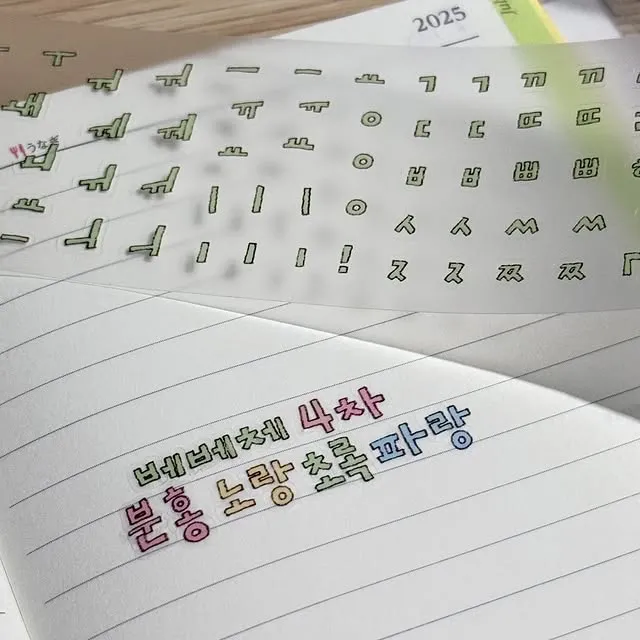 2025
ㅜ ㅝ ㅝ ㅡ ㅡ ㅛ ㄱ ㄱ ㄲ ㄲ
ㅞ ㅞ ㅠ ㅠ ㅇ ㄷ ㄷ ㄸ ㄸ
うなぎ
ㅠ ㅛ ㅛ ㅇ ㅂ ㅂ ㅃ ㅃ
ㅜ ㅣ ㅣ ㅣ ㅇ ㅅ ㅅ ㅆ ㅆ
ㅜ ㅣ ㅣ ㅣ ! ㅈ ㅈ ㅉ ㅉ
베베체 4차
분홍 노랑 초록 파랑